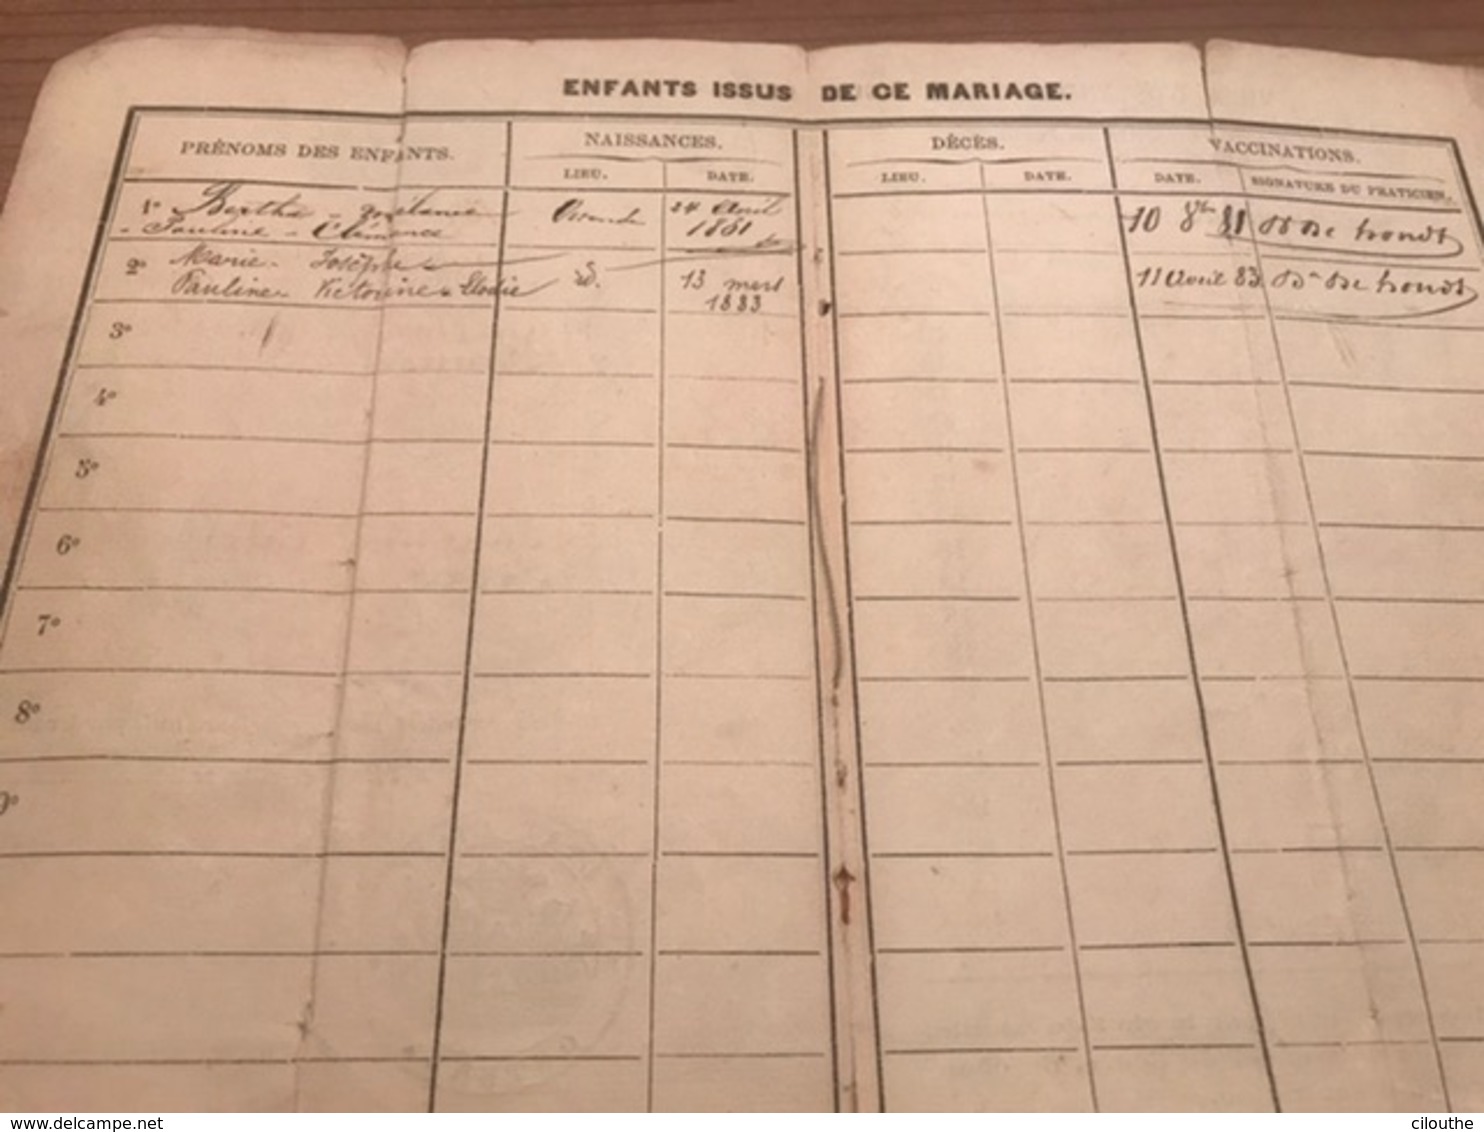 ENFANTS ISSUS DE CE MARIAGE.
PRÉNOMS DES ENFANTS. NAISSANCES. DÉCÈS. VACCINATIONS.
LIEU. DATE. LIEU. DATE. DATE. SIGNATURE DU PRATICIEN.
1° Berthe - Mélanie 24 Avril 10 8bre 81
- Pauline - Clémence 1881
2° Marie - Josèphe id. 13 mars 11 Avril 83
Pauline - Victorine - Elodie 1883
3°
4°
5°
6°
7°
8°
9°
www.delcampe.net
cilouthe